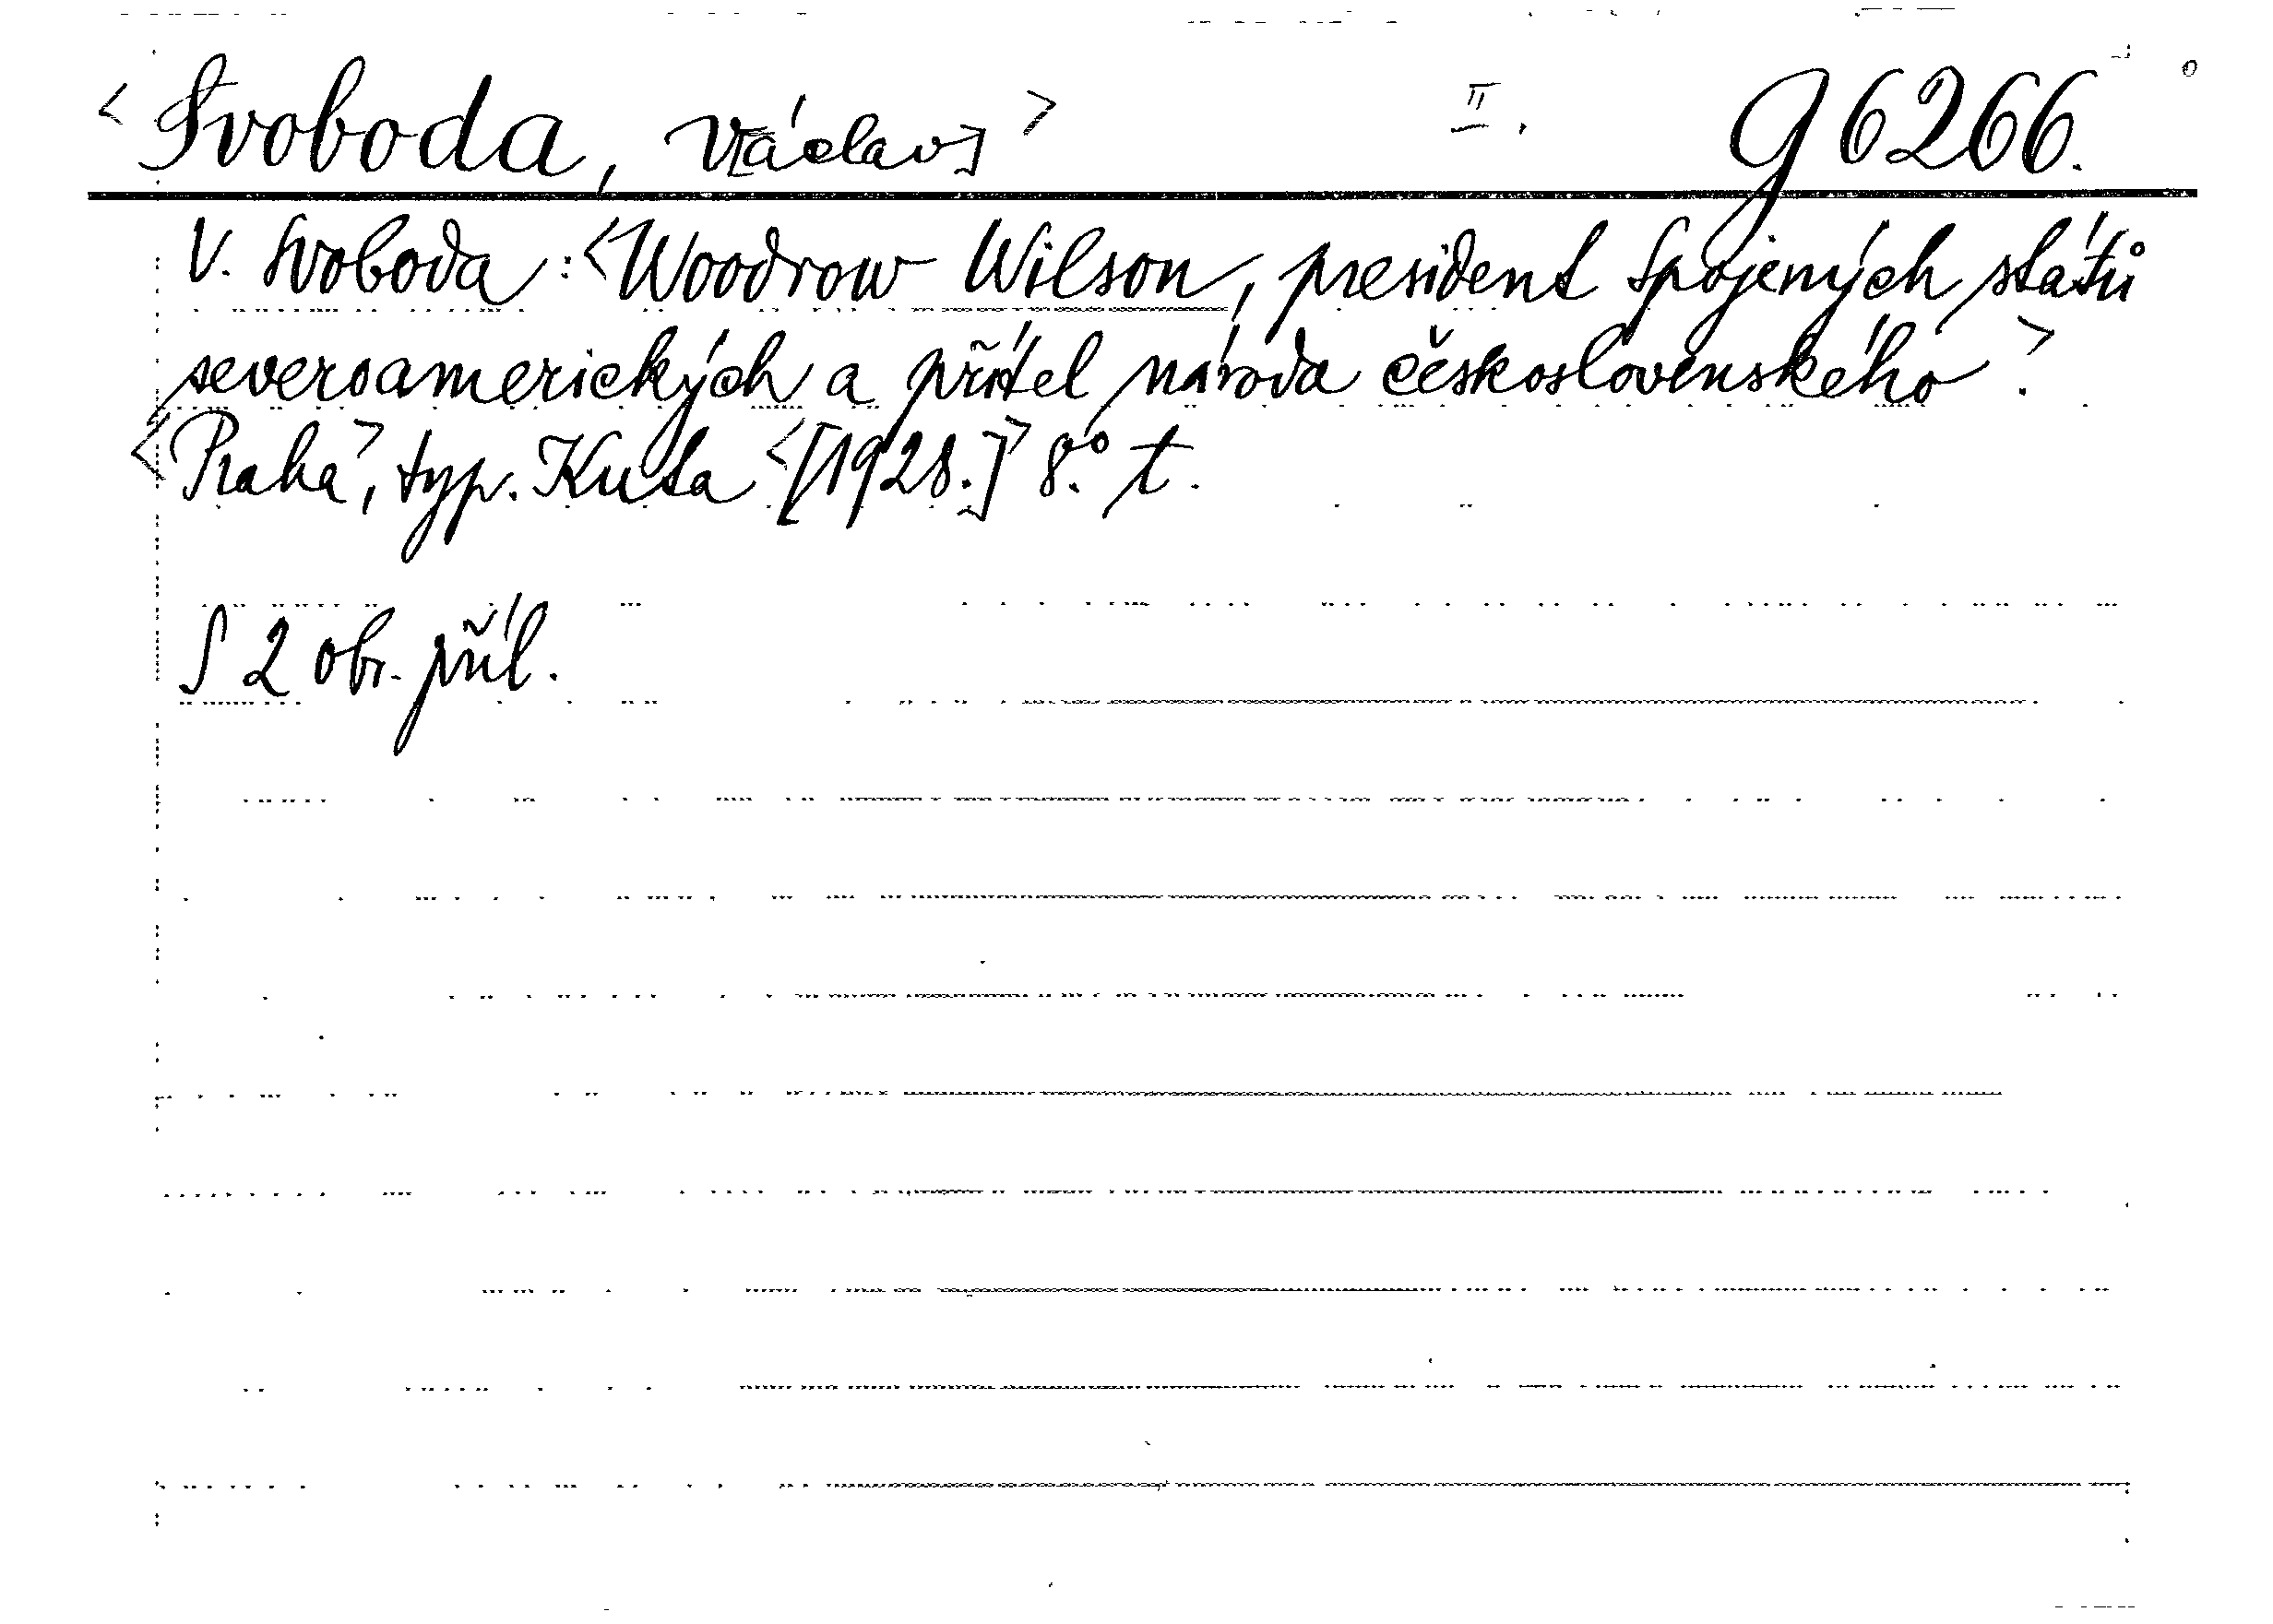 <Svoboda, V[áclav]> II. g 6266.
V. Svoboda: <Woodrow Wilson, president Spojených států
severoamerických a přítel národa československého.>
<Praha>, typ. Kuta <[1928.]> 8.° t.
S 2 obr. příl.